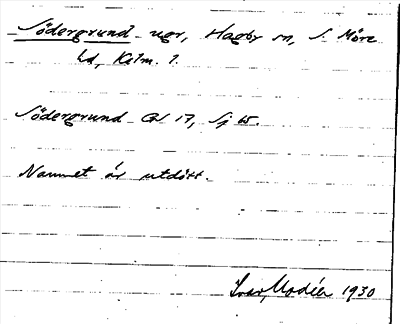 Södergrund ugr, Hagby sn, S. Möre
hd, Kalm. l.
Södergrund GK 17, Sj 65.
Namnet är utdött.
Ivar Modéer 1930